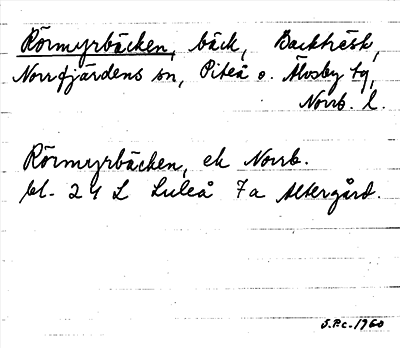 Rörmyrbäcken, bäck, Backträsk,
Norrfjärdens sn, Piteå o. Älvsby tg,
Norrb. l.
Rörmyrbäcken, ek Norrb.
bl. 24 L Luleå 7a Altergård.
S.P.c. 1960